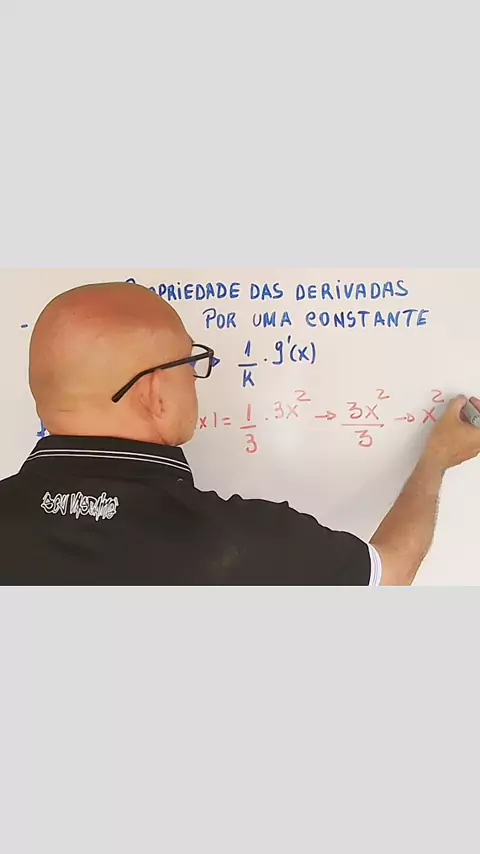 PROPRIEDADE DAS DERIVADAS
- POR UMA CONSTANTE
→ 1/K · g'(x)
x) = 1/3 · 3x² → 3x²/3 → x²